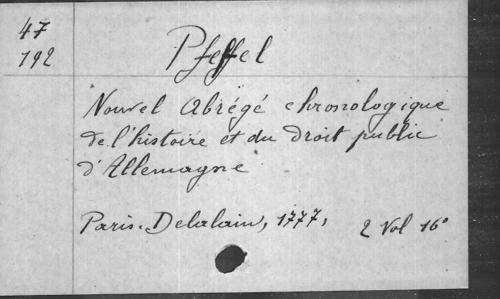 47
192
Pfeffel
Nouvel Abrégé chronologique
de l'histoire et du droit public
d'Allemagne
Paris. Delalain, 1777, 2 Vol 16°